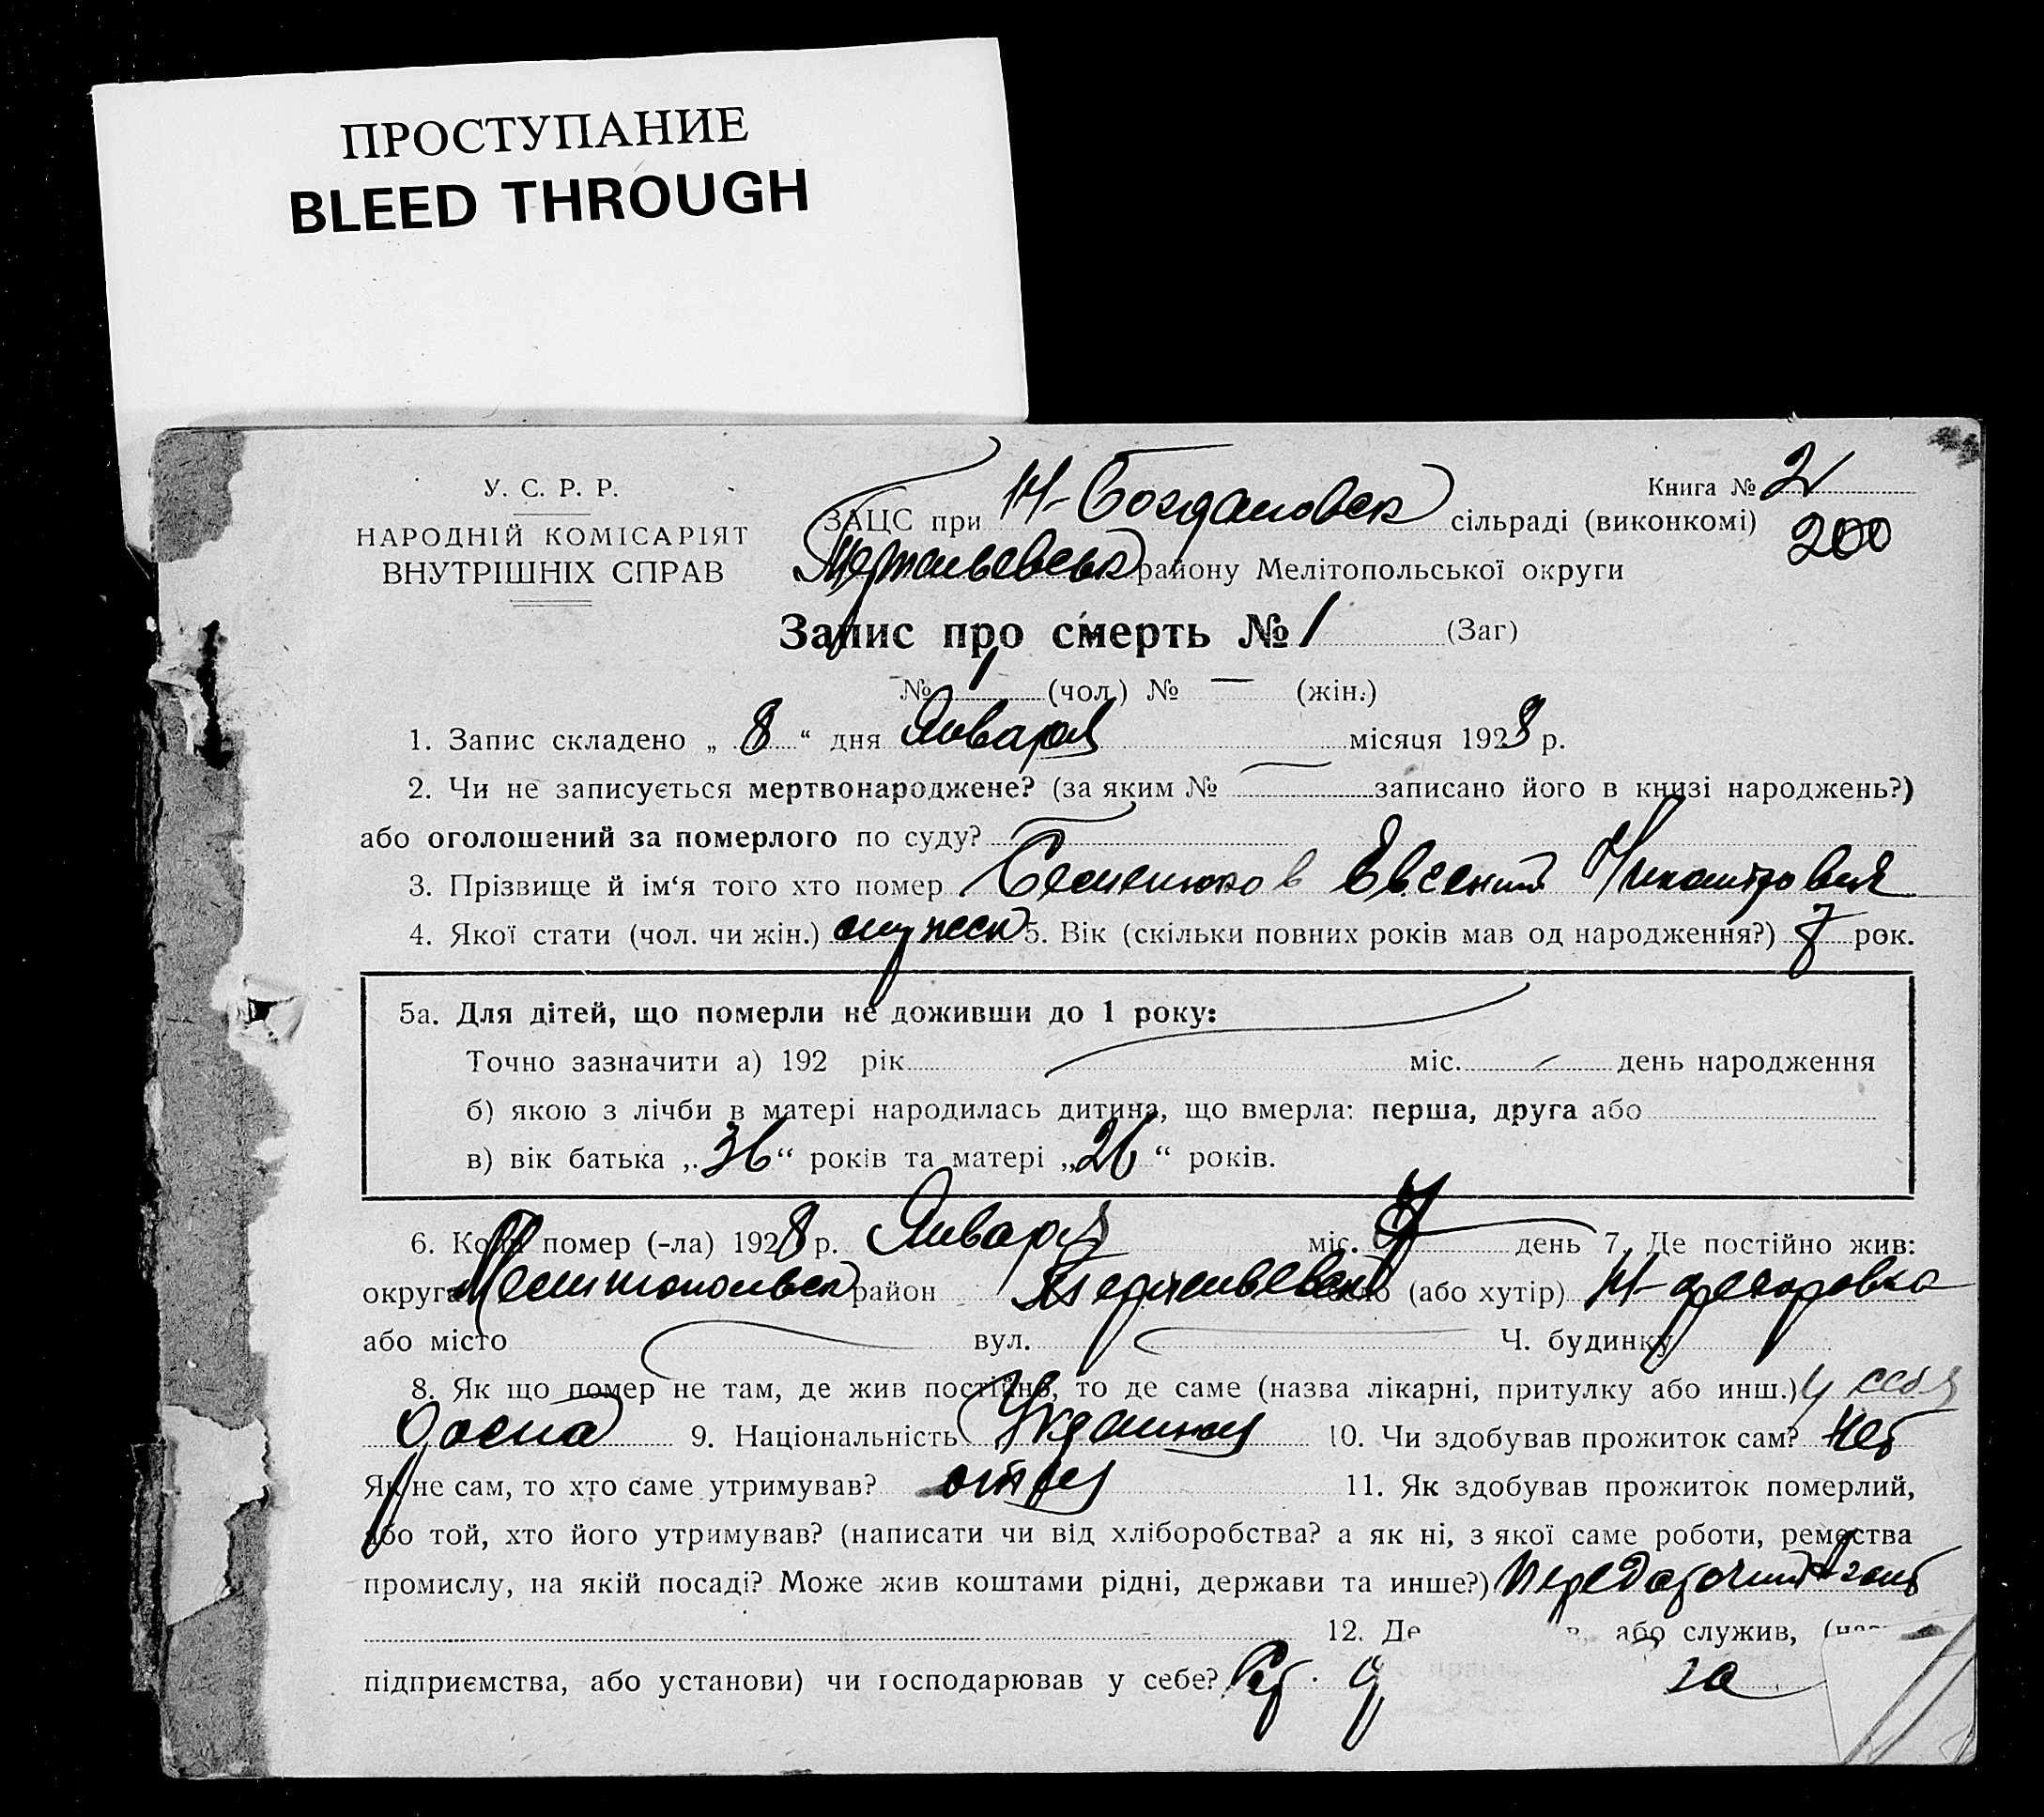 ПРОСТУПАНИЕ
BLEED THROUGH
У. С. Р. Р.
НАРОДНІЙ КОМІСАРІЯТ
ВНУТРІШНІХ СПРАВ
Книга № 2
200
ЗАЦС при Н-Богдановск сільраді (виконкомі)
району Мелітопольської округи
Запис про смерть № 1 (Заг)
№ 1 (чол.) № — (жін.)
1. Запис складено „ 8 “ дня Января місяця 1928 р.
2. Чи не записується мертвонароджене? (за яким № записано його в книзі народжень?)
або оголошений за померлого по суду?
3. Прізвище й ім‘я того хто помер Евгений
4. Якої стати (чол. чи жін.) мужеск 5. Вік (скільки повних років мав од народження?) 7 рок.
5а. Для дітей, що померли не доживши до 1 року:
Точно зазначити а) 192 рік міс. день народження
б) якою з лічби в матері народилась дитина, що вмерла: перша, друга або
в) вік батька „ 36 “ років та матері „ 26 “ років.
6. Коли помер (-ла) 1928 р. Января міс. 7 день 7. Де постійно жив:
округа Мелитопольск район село (або хутір)
або місто вул. Ч. будинку
8. Як що помер не там, де жив постійно, то де саме (назва лікарні, притулку або инш.) у себя
дома 9. Національність 10. Чи здобував прожиток сам? нет
Як не сам, то хто саме утримував? отец 11. Як здобував прожиток померлий,
або той, хто його утримував? (написати чи від хліборобства? а як ні, з якої саме роботи, ремества
промислу, на якій посаді? Може жив коштами рідні, держави та инше?)
12. Де або служив,
підприємства, або установи) чи господарював у себе?